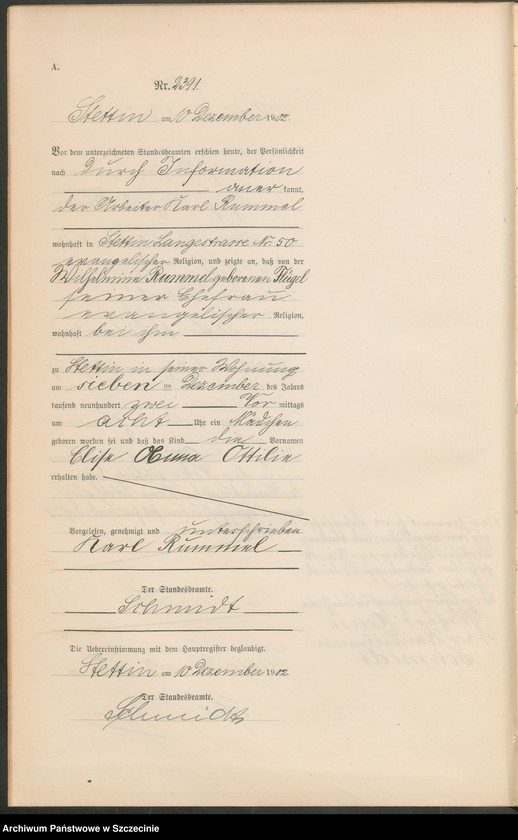 A.
Nr. 2391
Stettin am 10 Dezember 1902.
Vor dem unterzeichneten Standesbeamten erschien heute, der Persönlichkeit
nach durch Information
aner kannt,
der Arbeiter Karl Rummel
wohnhaft in Stettin Langestrasse Nr. 50
evangelischer Religion, und zeigte an, daß von der
Wilhelmine Rummel geborenen Flügel
seiner Ehefrau
evangelischer Religion,
wohnhaft bei ihm
zu Stettin in seiner Wohnung
am sieben ten Dezember des Jahres
tausend neunhundert zwei Vor mittags
um acht Uhr ein Mädchen
geboren worden sei und daß das Kind die Vornamen
Elise Anna Ottilie
erhalten habe.
Vorgelesen, genehmigt und unterschrieben.
Karl Rummel
Der Standesbeamte.
Schmidt
Die Uebereinstimmung mit dem Hauptregister beglaubigt.
Stettin am 10 Dezember 1902.
Der Standesbeamte.
Schmidt
Archiwum Państwowe w Szczecinie